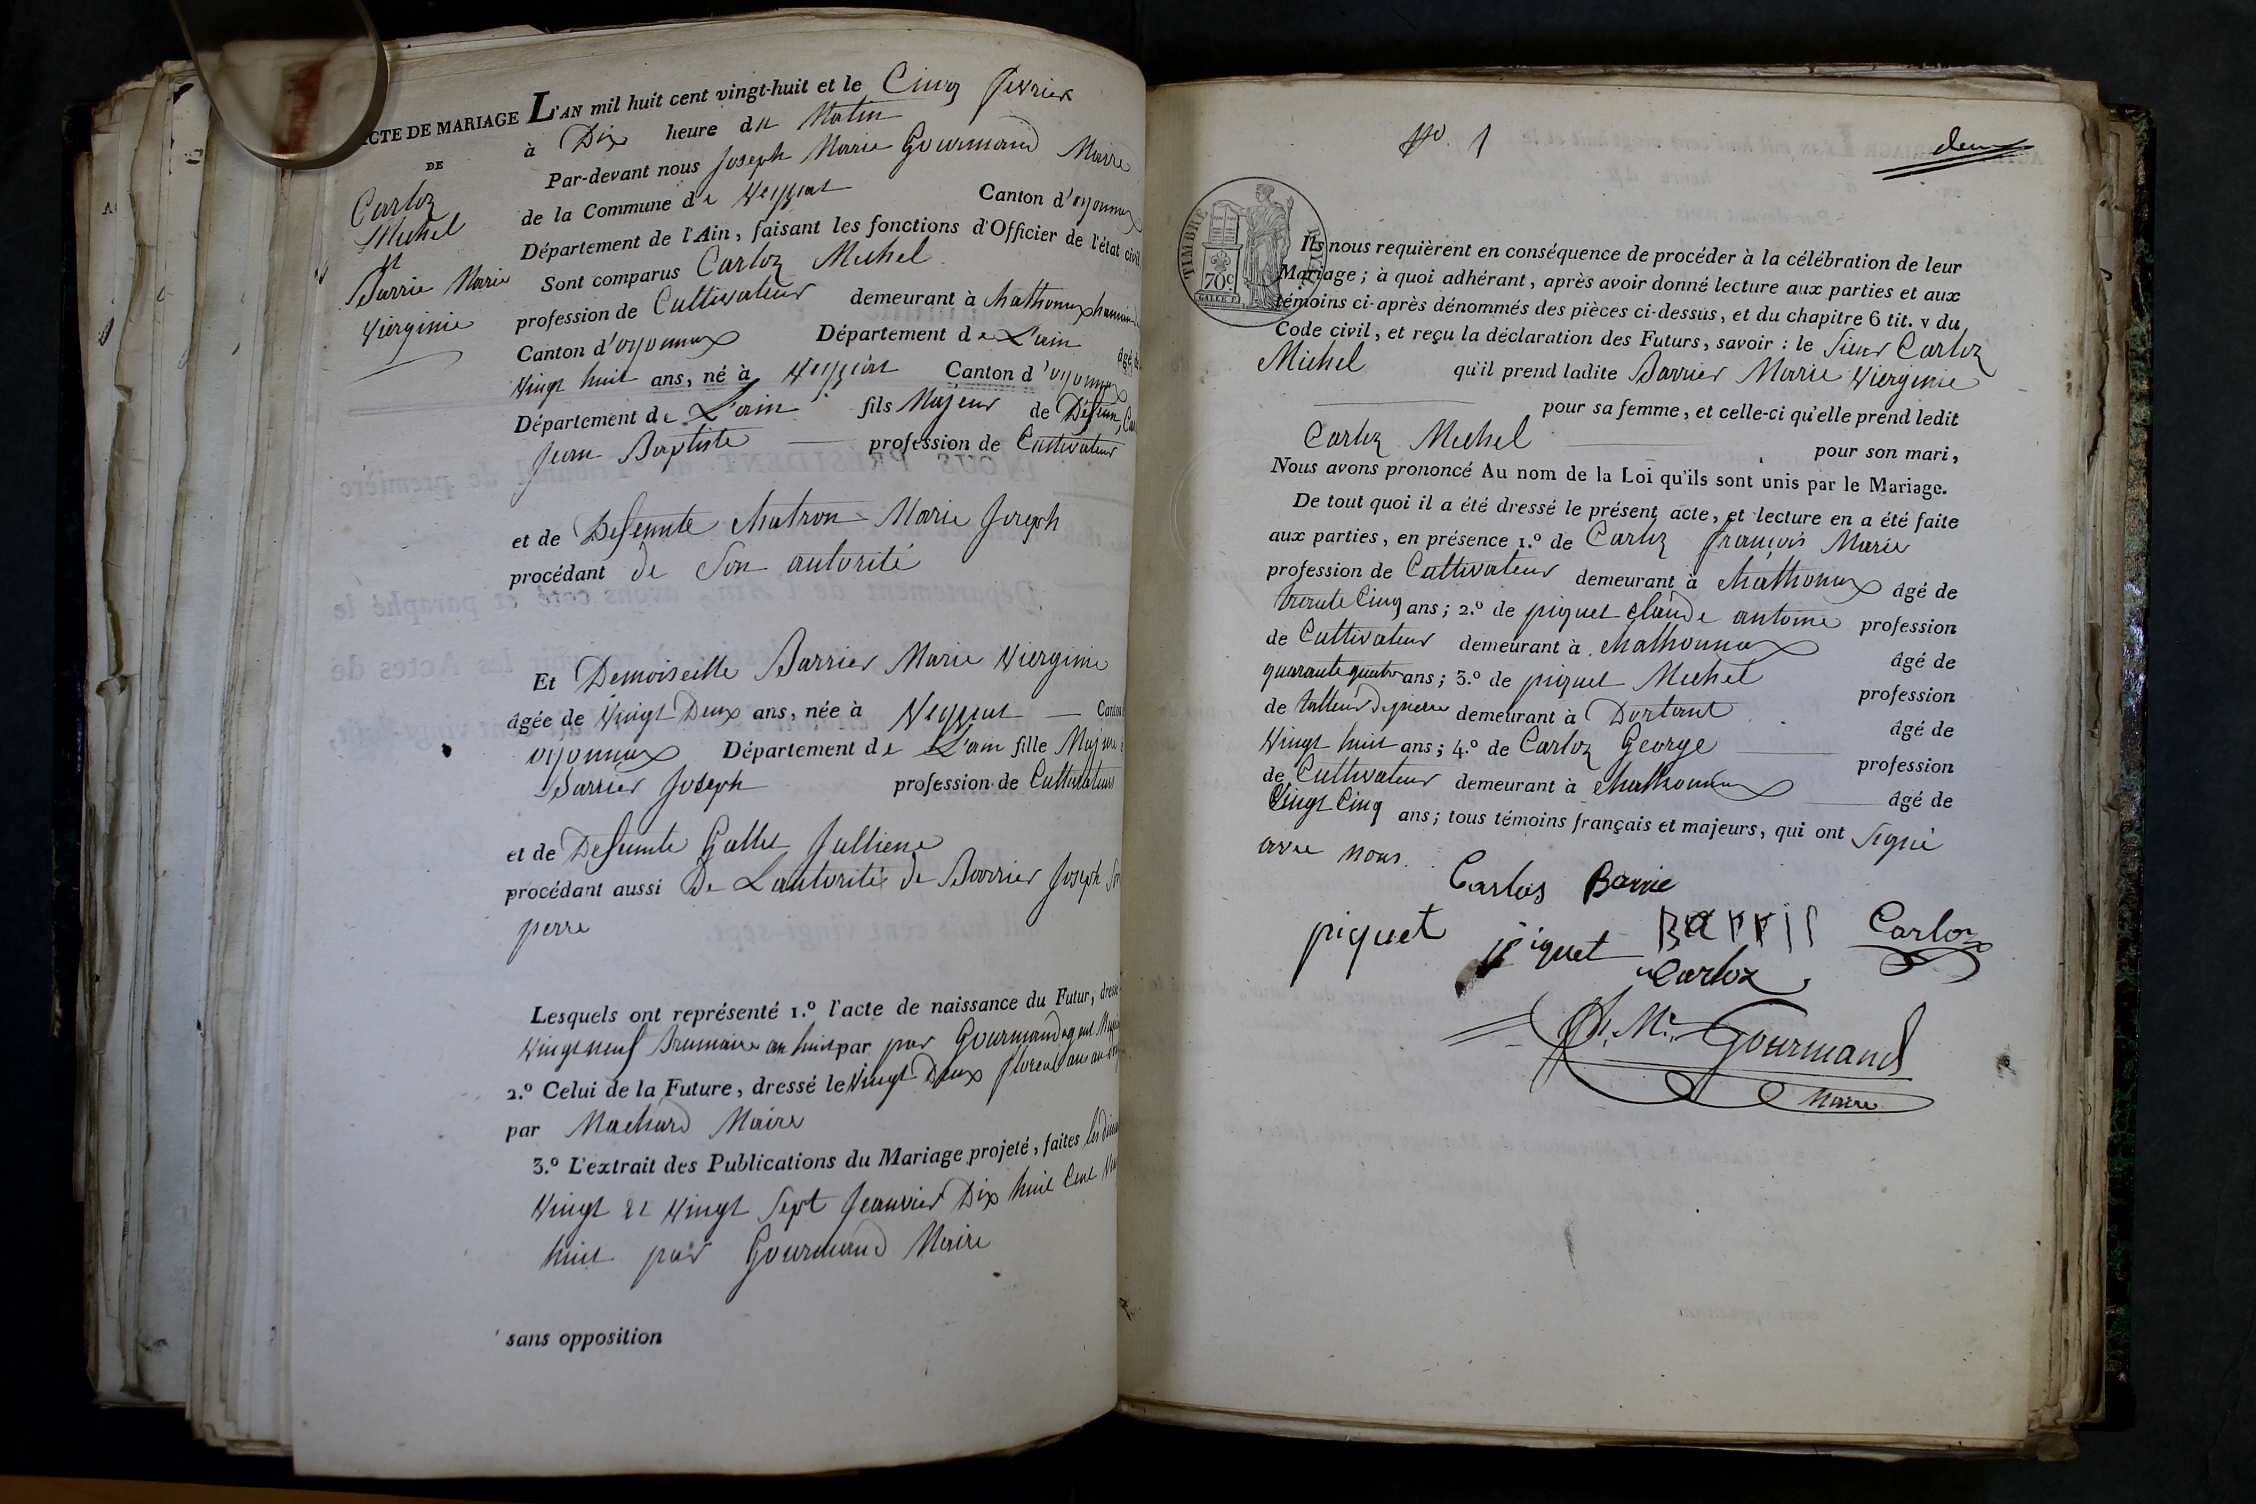 ACTE DE MARIAGE L'AN mil huit cent vingt-huit et le Cinq fevrier
DE
à Dix heure du Matin
Par-devant nous Joseph Marie Gourmand Maire
de la Commune de Veyziat Canton d'oyonnax
Département de l'Ain, faisant les fonctions d'Officier de l'état civil
Carloz
Michel
et
Barrie Marie
Vierginie
Sont comparus Carloz Michel
profession de Cultivateur demeurant à chathonnax
Canton d'oyonnax Département de L'ain âgé de
Vingt huit ans, né à Veyziat Canton d'oyonnax
Département de L'ain fils Majeur de Défunt
Jean Baptiste profession de Cultivateur
et de Defunte chatron Marie Joseph
procédant de Son autorité
Et Demoiselle Barrier Marie Vierginie
âgée de Vingt Deux ans, née à Veyziat Canton
oyonnax Département de L'ain fille Majeure
Barrier Joseph profession de Cultivateur
et de Defunte Gallet Julliene
procédant aussi De L'autorité de Barrier Joseph Son
perre
Lesquels ont représenté 1.º l'acte de naissance du Futur, dressé
Vingt neuf Brumaire an huit par par Gourmand agent
2.º Celui de la Future, dressé le Vingt Deux floreal an
par Machard Maire
3.º L'extrait des Publications du Mariage projeté, faites les
Vingt et Vingt Sept Jeanvier Dix huit Cent
huit par Gourmand Maire
sans opposition
Nº. 1
deux
TIMBRE
ROYAL
70c
Ils nous requièrent en conséquence de procéder à la célébration de leur
Mariage; à quoi adhérant, après avoir donné lecture aux parties et aux
témoins ci-après dénommés des pièces ci-dessus, et du chapitre 6 tit. v du
Code civil, et reçu la déclaration des Futurs, savoir : le Sieur Carloz
Michel qu'il prend ladite Barrier Marie Vierginie
pour sa femme, et celle-ci qu'elle prend ledit
Carloz Michel pour son mari,
Nous avons prononcé Au nom de la Loi qu'ils sont unis par le Mariage.
De tout quoi il a été dressé le présent acte, et lecture en a été faite
aux parties, en présence 1.º de Carloz françois Marie
profession de Cultivateur demeurant à chathonnax âgé de
trente Cinq ans; 2.º de piquet claude antoine profession
de Cultivateur demeurant à chathonnax âgé de
quarante quatre ans; 3.º de piquet Michel profession
de talleur de pierre demeurant à Dortant âgé de
Vingt huit ans; 4.º de Carloz George profession
de Cultivateur demeurant à chathonnax âgé de
Vingt Cinq ans; tous témoins français et majeurs, qui ont Signé
avec nous.
Carlos Barrie
piquet piquet Carloz
Carloz
J. M. Gourmand
Maire